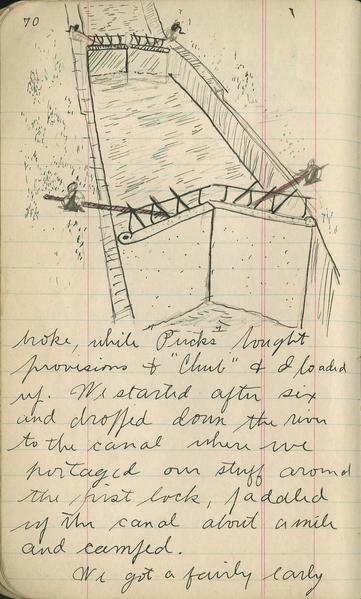 70
broke, while "Pucks" bought
provisions & "Chub" & I loaded
up. We started after six
and dropped down the river
to the canal where we
portaged our stuff around
the first lock, paddled
up the canal about a mile
and camped.
We got a fairly early